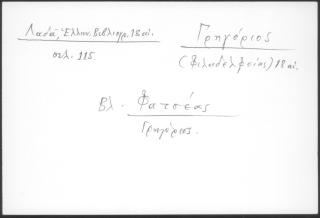 Λαδᾶ, Ἑλλην. Βιβλιογρ. 18 αἰ.
σελ. 115.
Γρηγόριος
(Φιλαδελφείας) 18 αἰ.
Βλ. Φατσέας
Γρηγόριος.